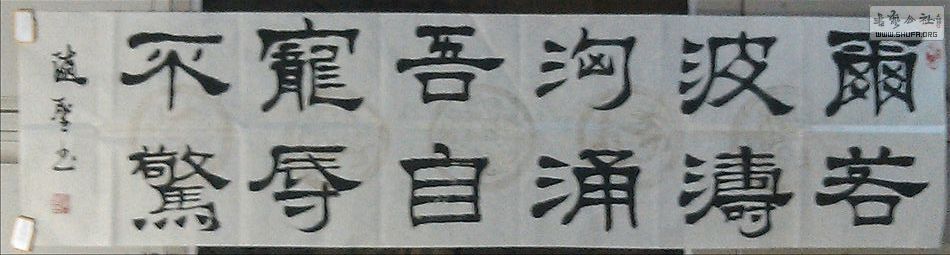 爾若
波濤
洶涌
吾自
寵辱
不驚
书
书艺公社
WWW.SHUFA.ORG